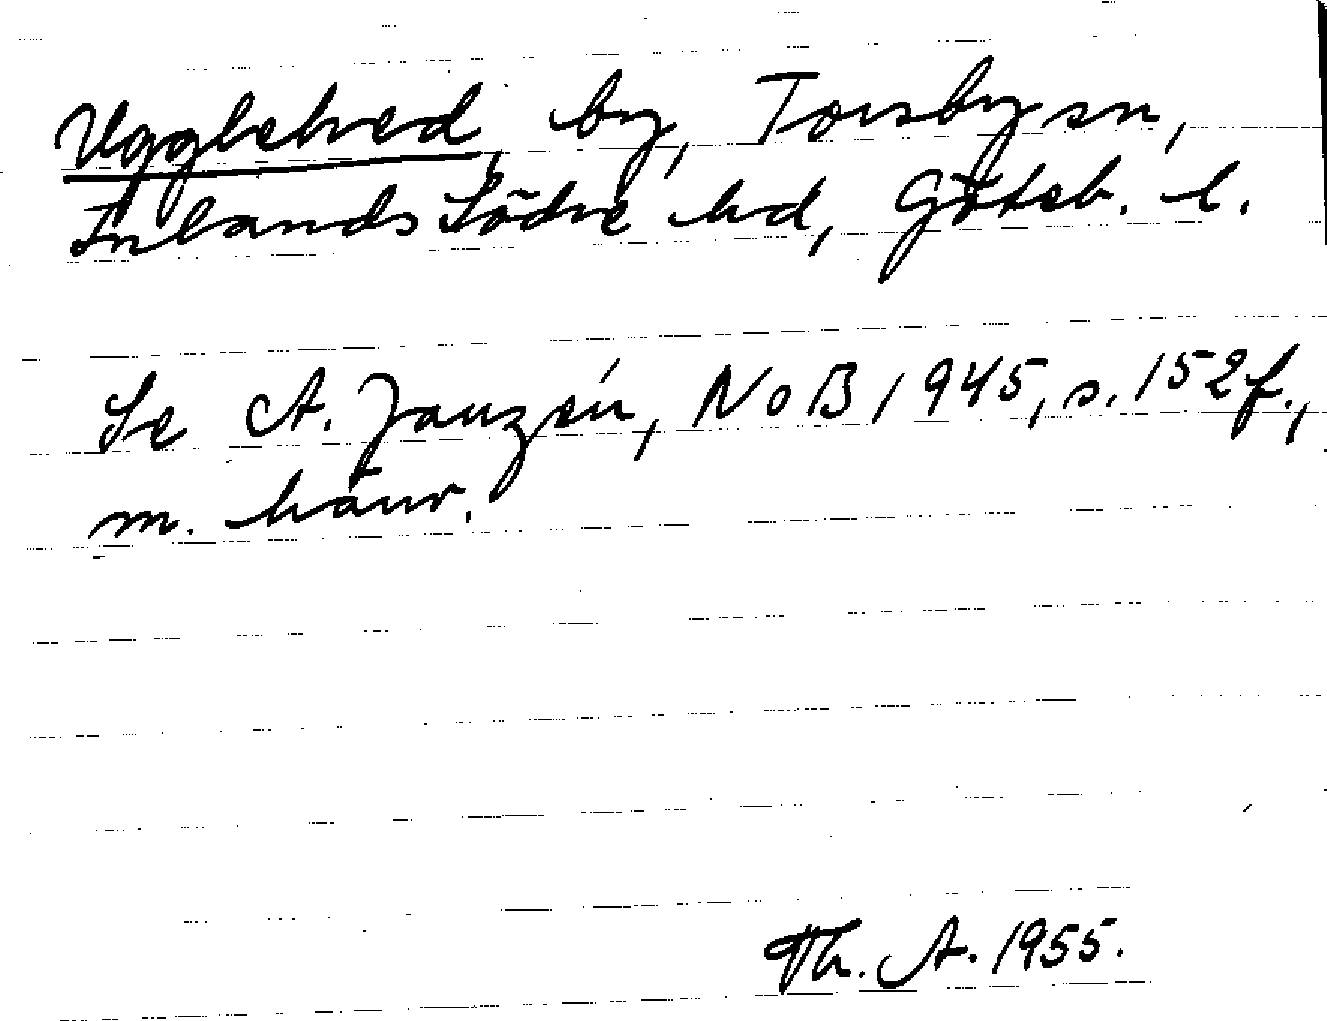 Ugglehved, by, Torsby sn,
Inlands Södre hd, Göteb. l.
Se A. Janzén, NoB 1945, s. 152 f.,
m. hänv.
Th. A. 1955.